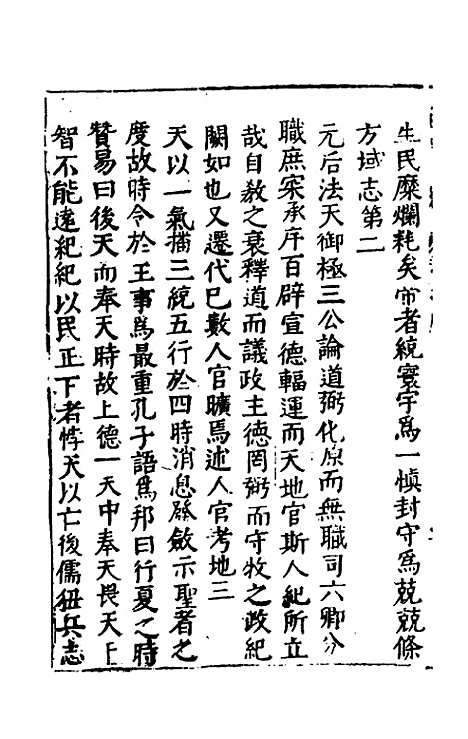 生民糜爛耗矣帝者統寰宇爲一愼封守爲兢兢條
方域志第二
元后法天御極三公論道弼化原而無職司六卿分
職庶寀承序百辟宣德輻運而天地官斯人紀所立
哉自教之衰釋道而議政主德罔弼而守牧之政紀
闕如也又遷代已數人官曠焉述人官考地三
天以一氣播三統五行於四時消息發斂示聖者之
度故時令於王事爲最重孔子語爲邦曰行夏之時
贊易曰後天而奉天時故上德一天中奉天畏天下
智不能違紀紀以民正下者悖天以亡後儒狃兵志